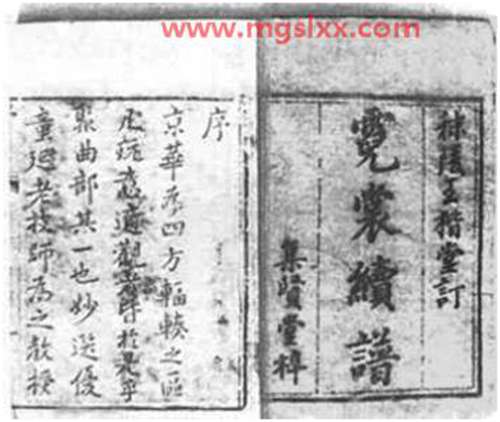 www.mgslxx.com
秣陵王楷堂訂
霓裳續譜
集賢堂梓
序
京華為四方輻輳之區
凡玩意適觀者皆於是乎
聚曲部其一也妙選優
童延老技師為之教授